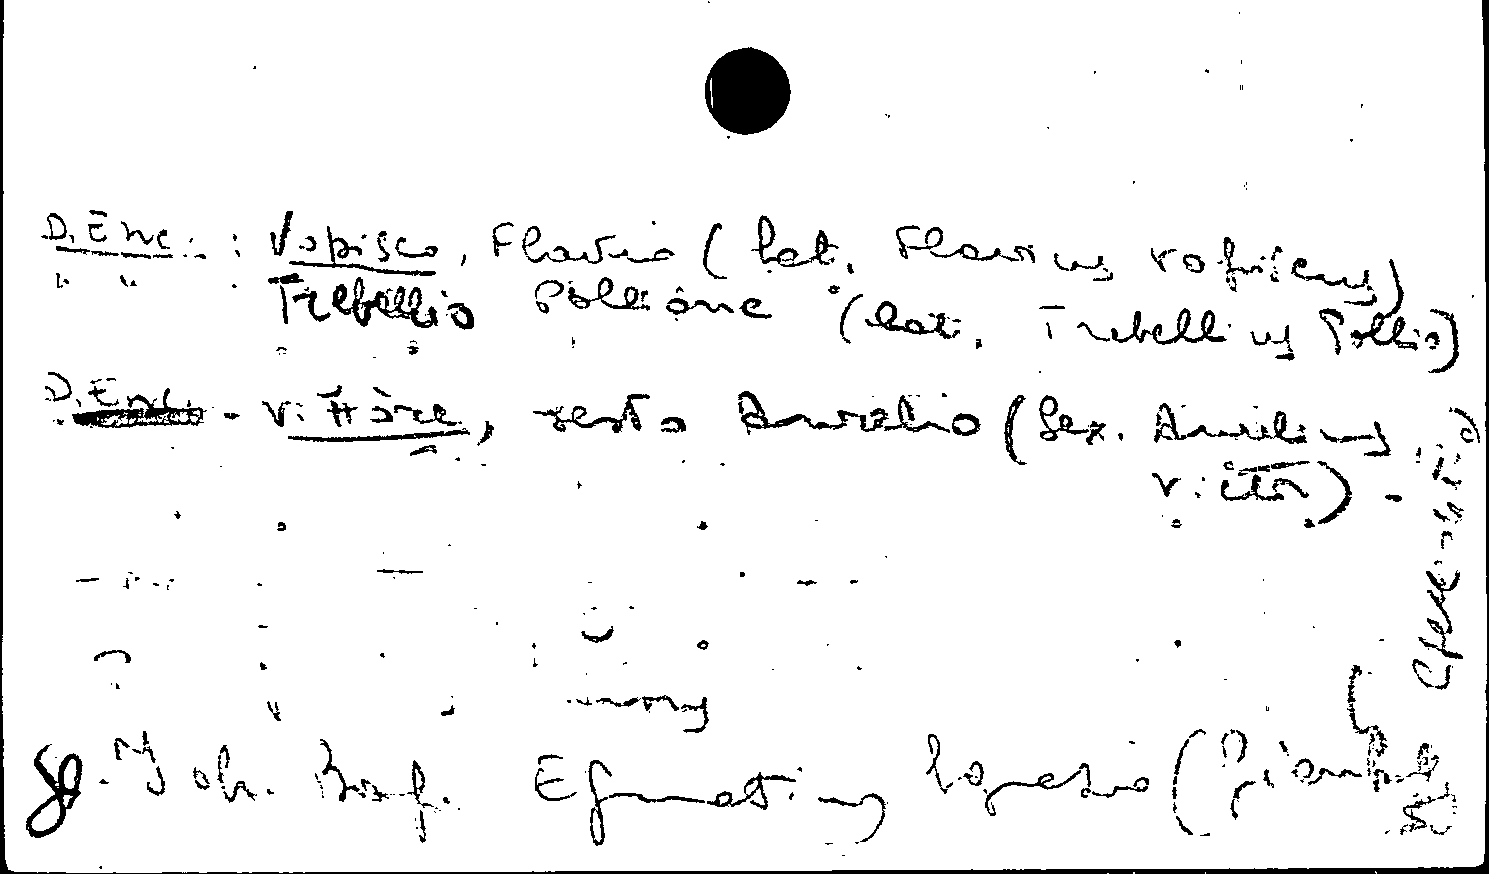 D. Enc. : Vopisco, Flavio (lat. Flavius Vopiscus)
" " . Trebellio Pollione (lat. Trebellius Pollio)
D. Enc. - Vittore, Sesto Aurelio (Sex. Aurelius
Victor) -
Joh. Bapt. Egnatius Egnazio (Giamb.